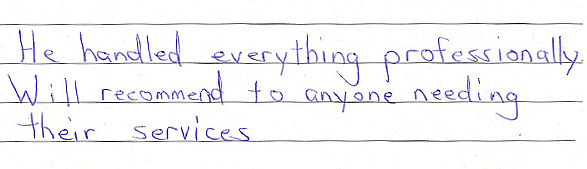 He handled everything professionally.
Will recommend to anyone needing
their services